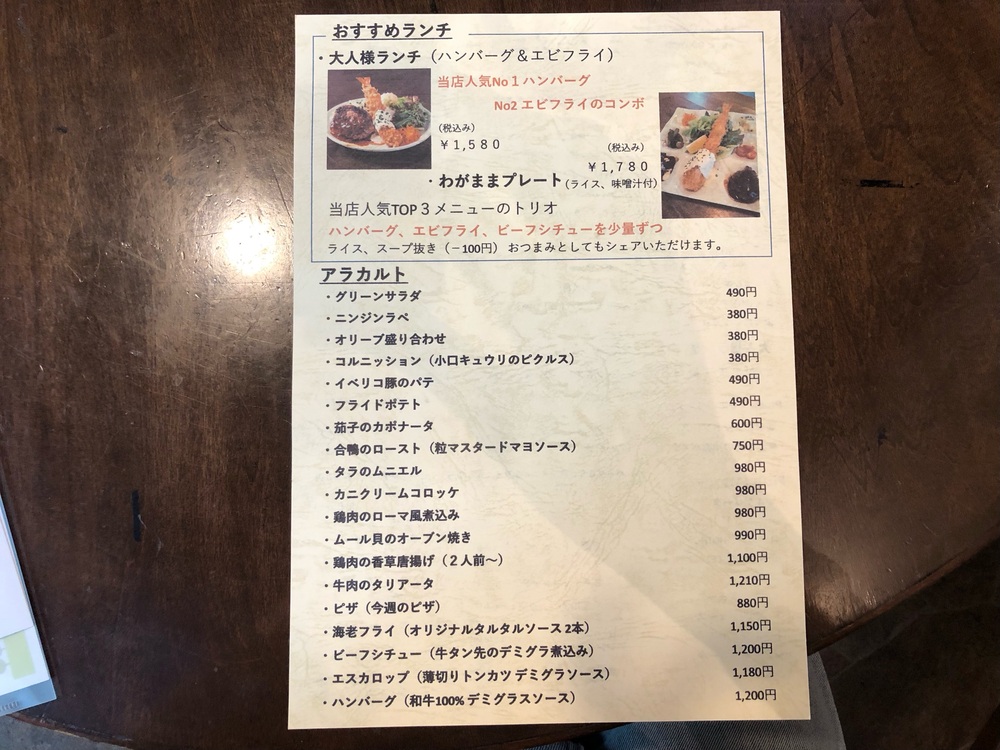 おすすめランチ
・大人様ランチ（ハンバーグ＆エビフライ）
当店人気No１ハンバーグ
No2 エビフライのコンボ
（税込み）
￥１,５８０
（税込み）
￥１,７８０
・わがままプレート（ライス、味噌汁付）
当店人気TOP３メニューのトリオ
ハンバーグ、エビフライ、ビーフシチューを少量ずつ
ライス、スープ抜き（－100円） おつまみとしてもシェアいただけます。
アラカルト
・グリーンサラダ 490円
・ニンジンラペ 380円
・オリーブ盛り合わせ 380円
・コルニッション（小口キュウリのピクルス） 380円
・イベリコ豚のパテ 490円
・フライドポテト 490円
・茄子のカポナータ 600円
・合鴨のロースト（粒マスタードマヨソース） 750円
・タラのムニエル 980円
・カニクリームコロッケ 980円
・鶏肉のローマ風煮込み 980円
・ムール貝のオーブン焼き 990円
・鶏肉の香草唐揚げ（２人前～） 1,100円
・牛肉のタリアータ 1,210円
・ピザ（今週のピザ） 880円
・海老フライ（オリジナルタルタルソース 2本） 1,150円
・ビーフシチュー（牛タン先のデミグラ煮込み） 1,200円
・エスカロップ（薄切りトンカツ デミグラソース） 1,180円
・ハンバーグ（和牛100% デミグラスソース） 1,200円